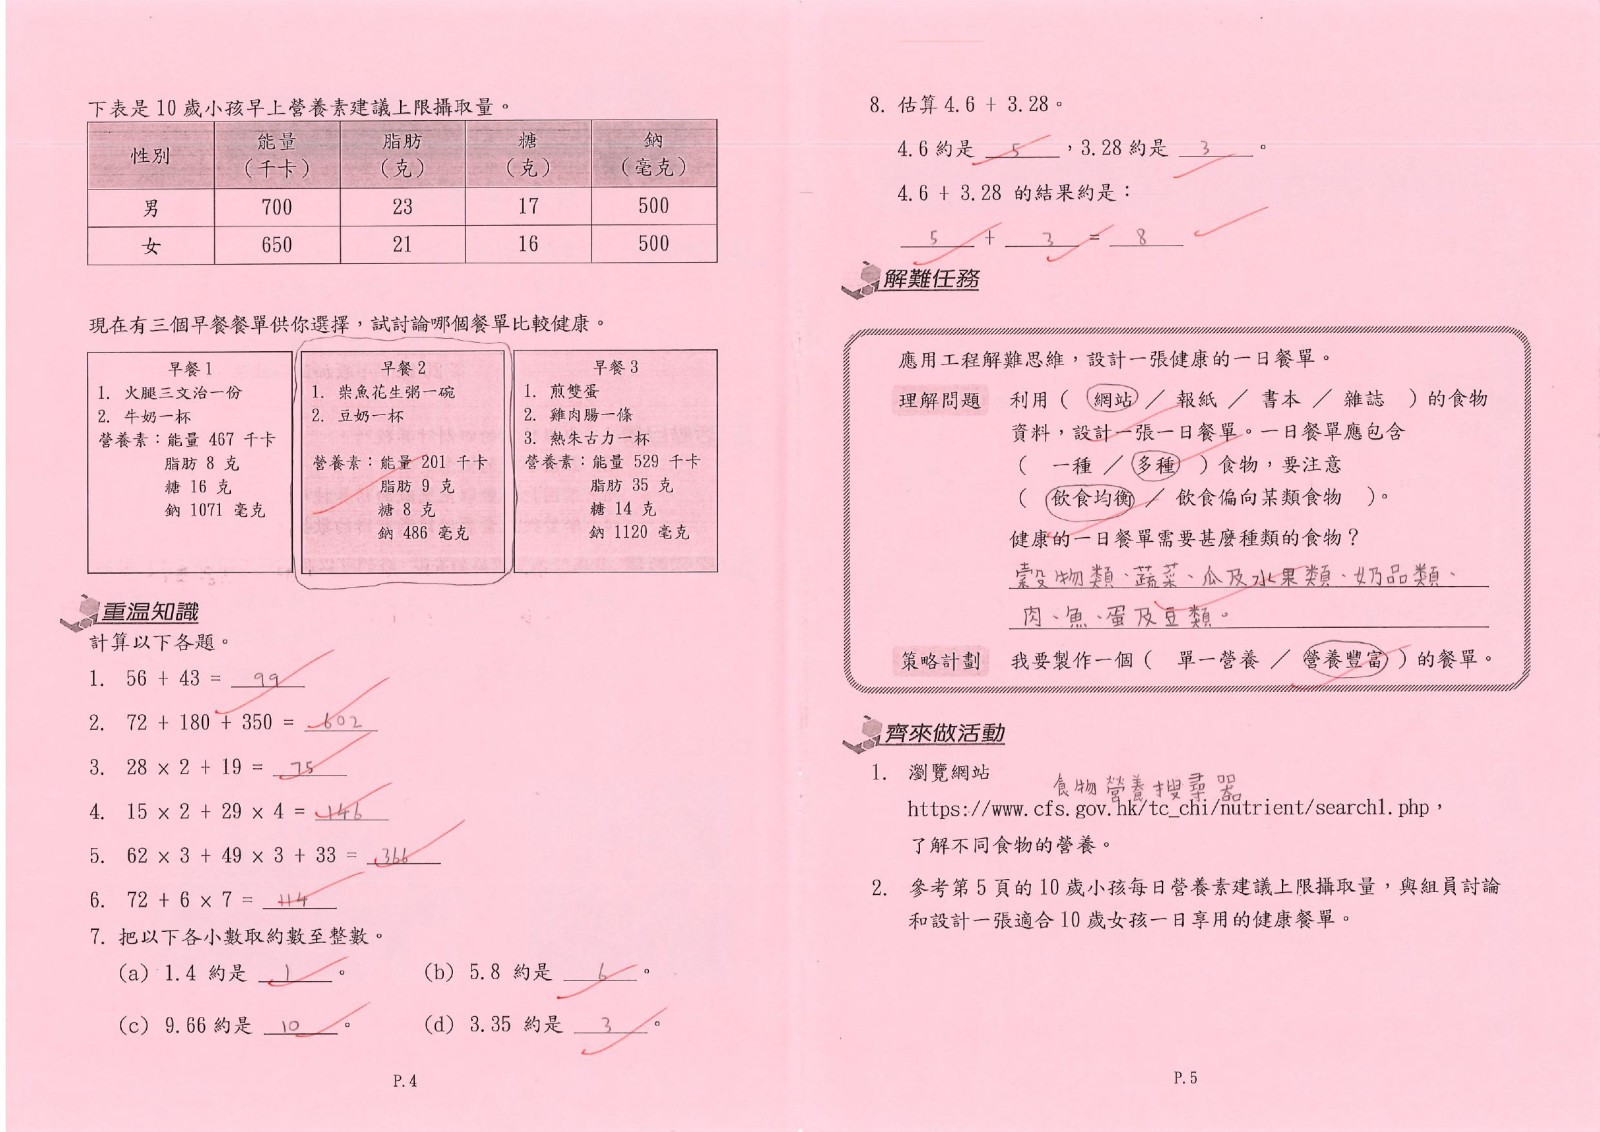 下表是 10 歲小孩早上營養素建議上限攝取量。
性別 能量（千卡） 脂肪（克） 糖（克） 鈉（毫克）
男 700 23 17 500
女 650 21 16 500
現在有三個早餐餐單供你選擇，試討論哪個餐單比較健康。
早餐 1
1. 火腿三文治一份
2. 牛奶一杯
營養素：能量 467 千卡
脂肪 8 克
糖 16 克
鈉 1071 毫克
早餐 2
1. 柴魚花生粥一碗
2. 豆奶一杯
營養素：能量 201 千卡
脂肪 9 克
糖 8 克
鈉 486 毫克
早餐 3
1. 煎雙蛋
2. 雞肉腸一條
3. 熱朱古力一杯
營養素：能量 529 千卡
脂肪 35 克
糖 14 克
鈉 1120 毫克
重温知識
計算以下各題。
1. 56 + 43 = 99
2. 72 + 180 + 350 = 602
3. 28 × 2 + 19 = 75
4. 15 × 2 + 29 × 4 = 146
5. 62 × 3 + 49 × 3 + 33 = 366
6. 72 + 6 × 7 = 114
7. 把以下各小數取約數至整數。
(a) 1.4 約是 1 。 (b) 5.8 約是 6 。
(c) 9.66 約是 10 。 (d) 3.35 約是 3 。
P.4
8. 估算 4.6 + 3.28。
4.6 約是 5 ，3.28 約是 3 。
4.6 + 3.28 的結果約是：
5 + 3 = 8
解難任務
應用工程解難思維，設計一張健康的一日餐單。
理解問題 利用（ 網站 ／ 報紙 ／ 書本 ／ 雜誌 ）的食物
資料，設計一張一日餐單。一日餐單應包含
（ 一種 ／ 多種 ）食物，要注意
（ 飲食均衡 ／ 飲食偏向某類食物 ）。
健康的一日餐單需要甚麼種類的食物？
穀物類、蔬菜、瓜及水果類、奶品類、
肉、魚、蛋及豆類。
策略計劃 我要製作一個（ 單一營養 ／ 營養豐富 ）的餐單。
齊來做活動
1. 瀏覽網站
食物營養搜尋器
https://www.cfs.gov.hk/tc_chi/nutrient/search1.php，
了解不同食物的營養。
2. 參考第 5 頁的 10 歲小孩每日營養素建議上限攝取量，與組員討論
和設計一張適合 10 歲女孩一日享用的健康餐單。
P.5